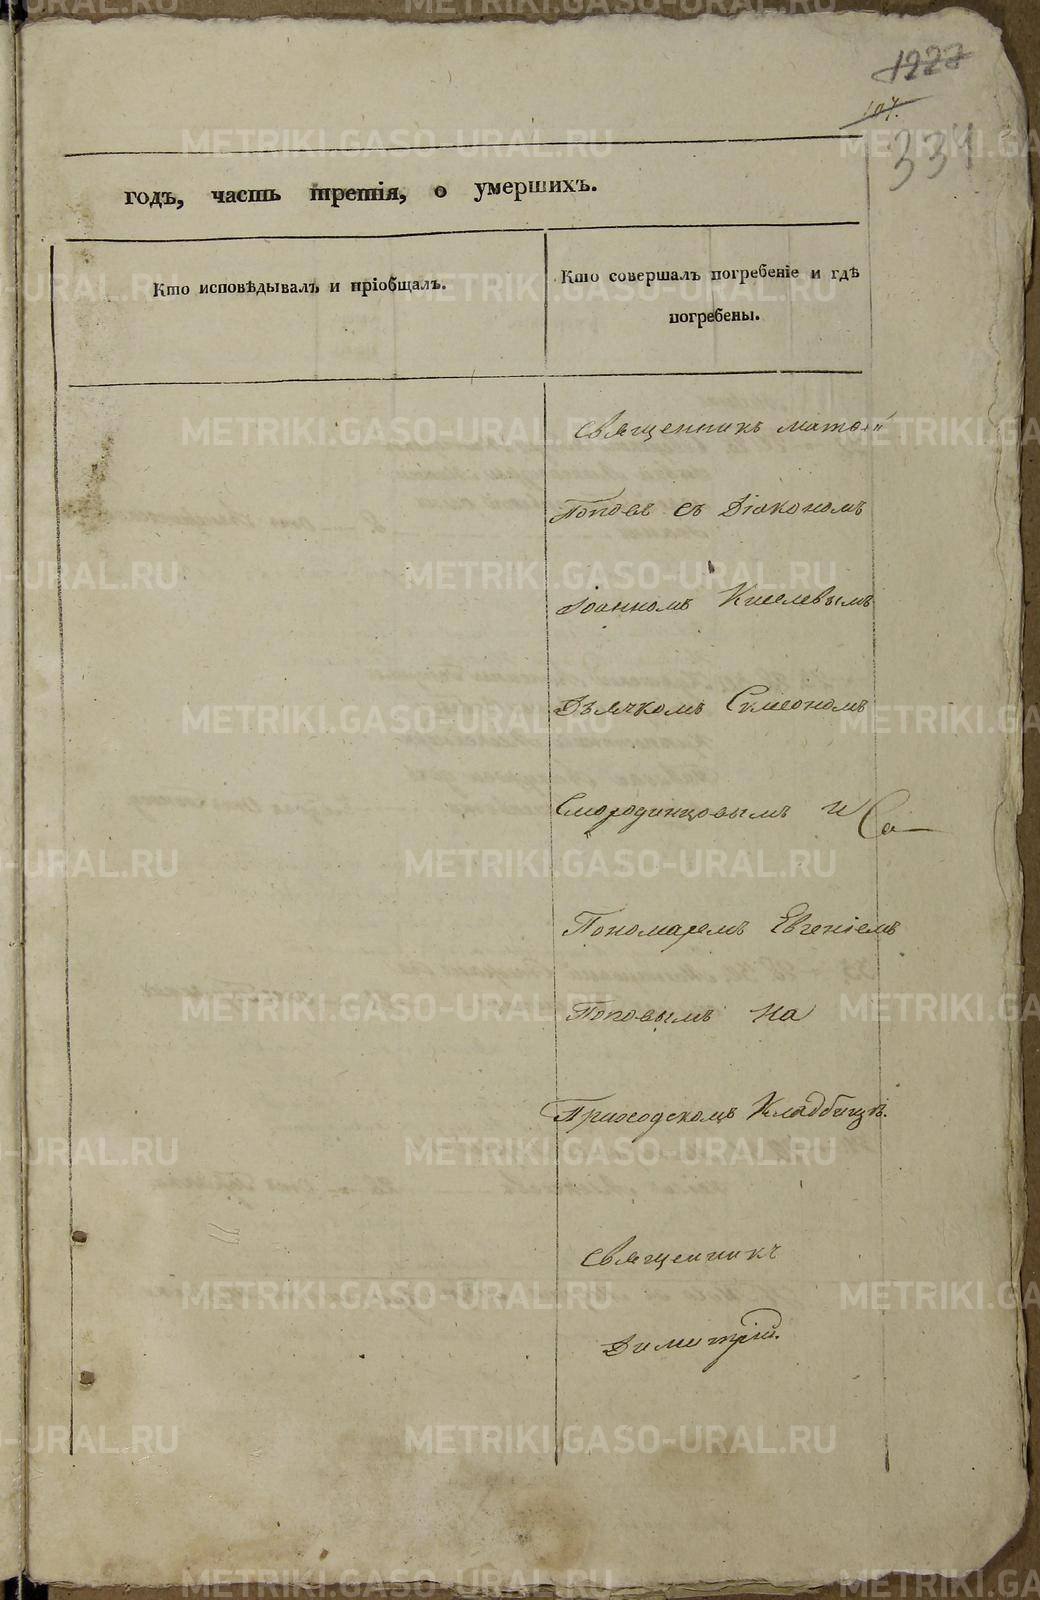 1227
107.
334
годъ, часть третія, о умершихъ.
Кто исповѣдывалъ и пріобщалъ.
Кто совершалъ погребеніе и гдѣ
погребены.
Священникъ Матѳей
Поповъ съ Діакономъ
Іоанномъ Киселевымъ
Дьячкомъ Сѵмеономъ
Смородинцовымъ и
Пономаремъ Евгеніемъ
Поповымъ на
Приходскомъ Кладбищѣ.
Священникъ
Димитрій.
METRIKI.GASO-URAL.RU